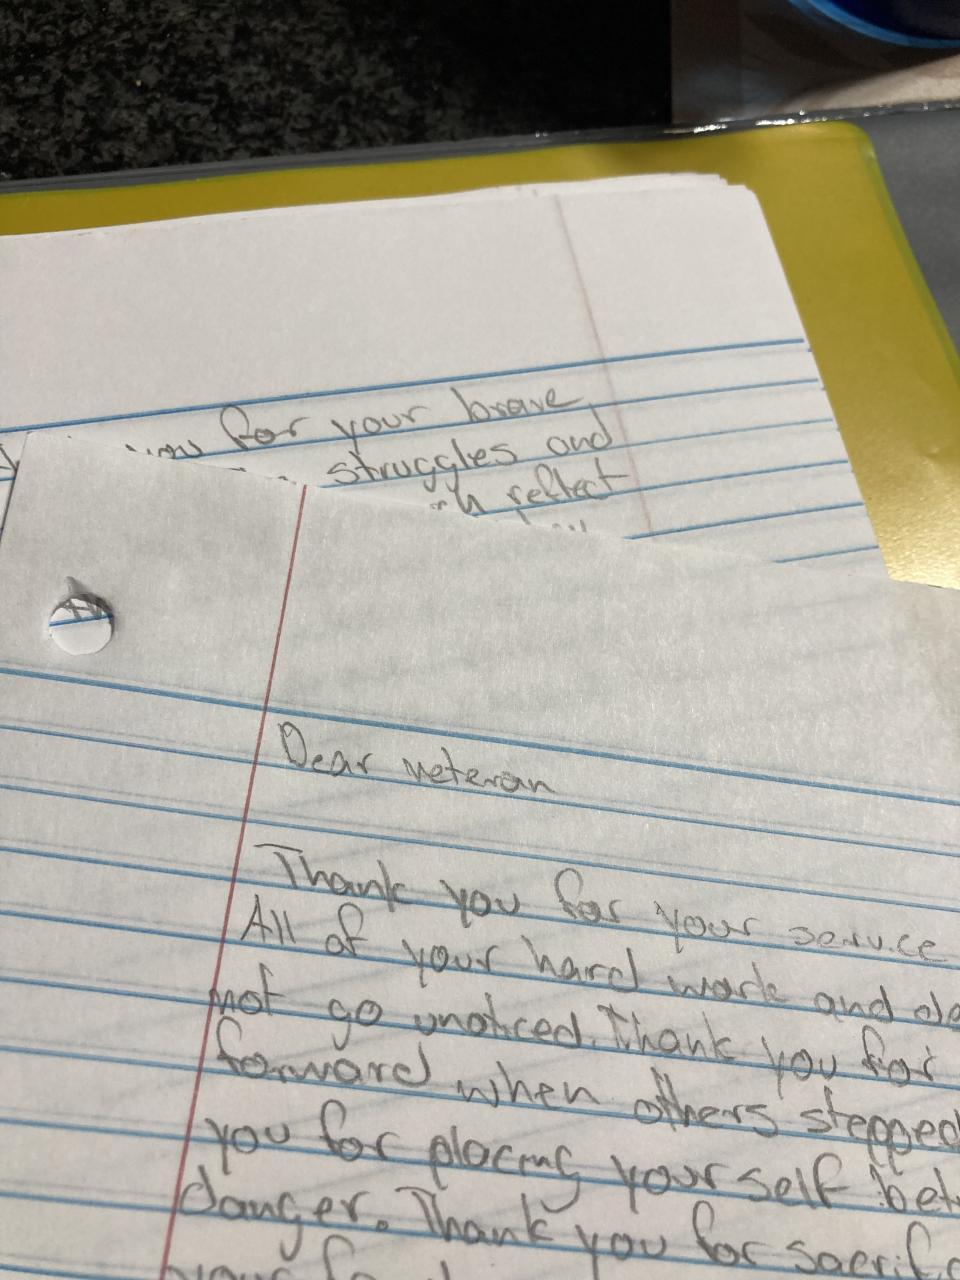 for your brave
struggles and
reflect
Dear veteran
Thank you for your service
All of your hard work and
not go unoticed. Thank you for
forward when others stepped
you for placing yourself
danger. Thank you for